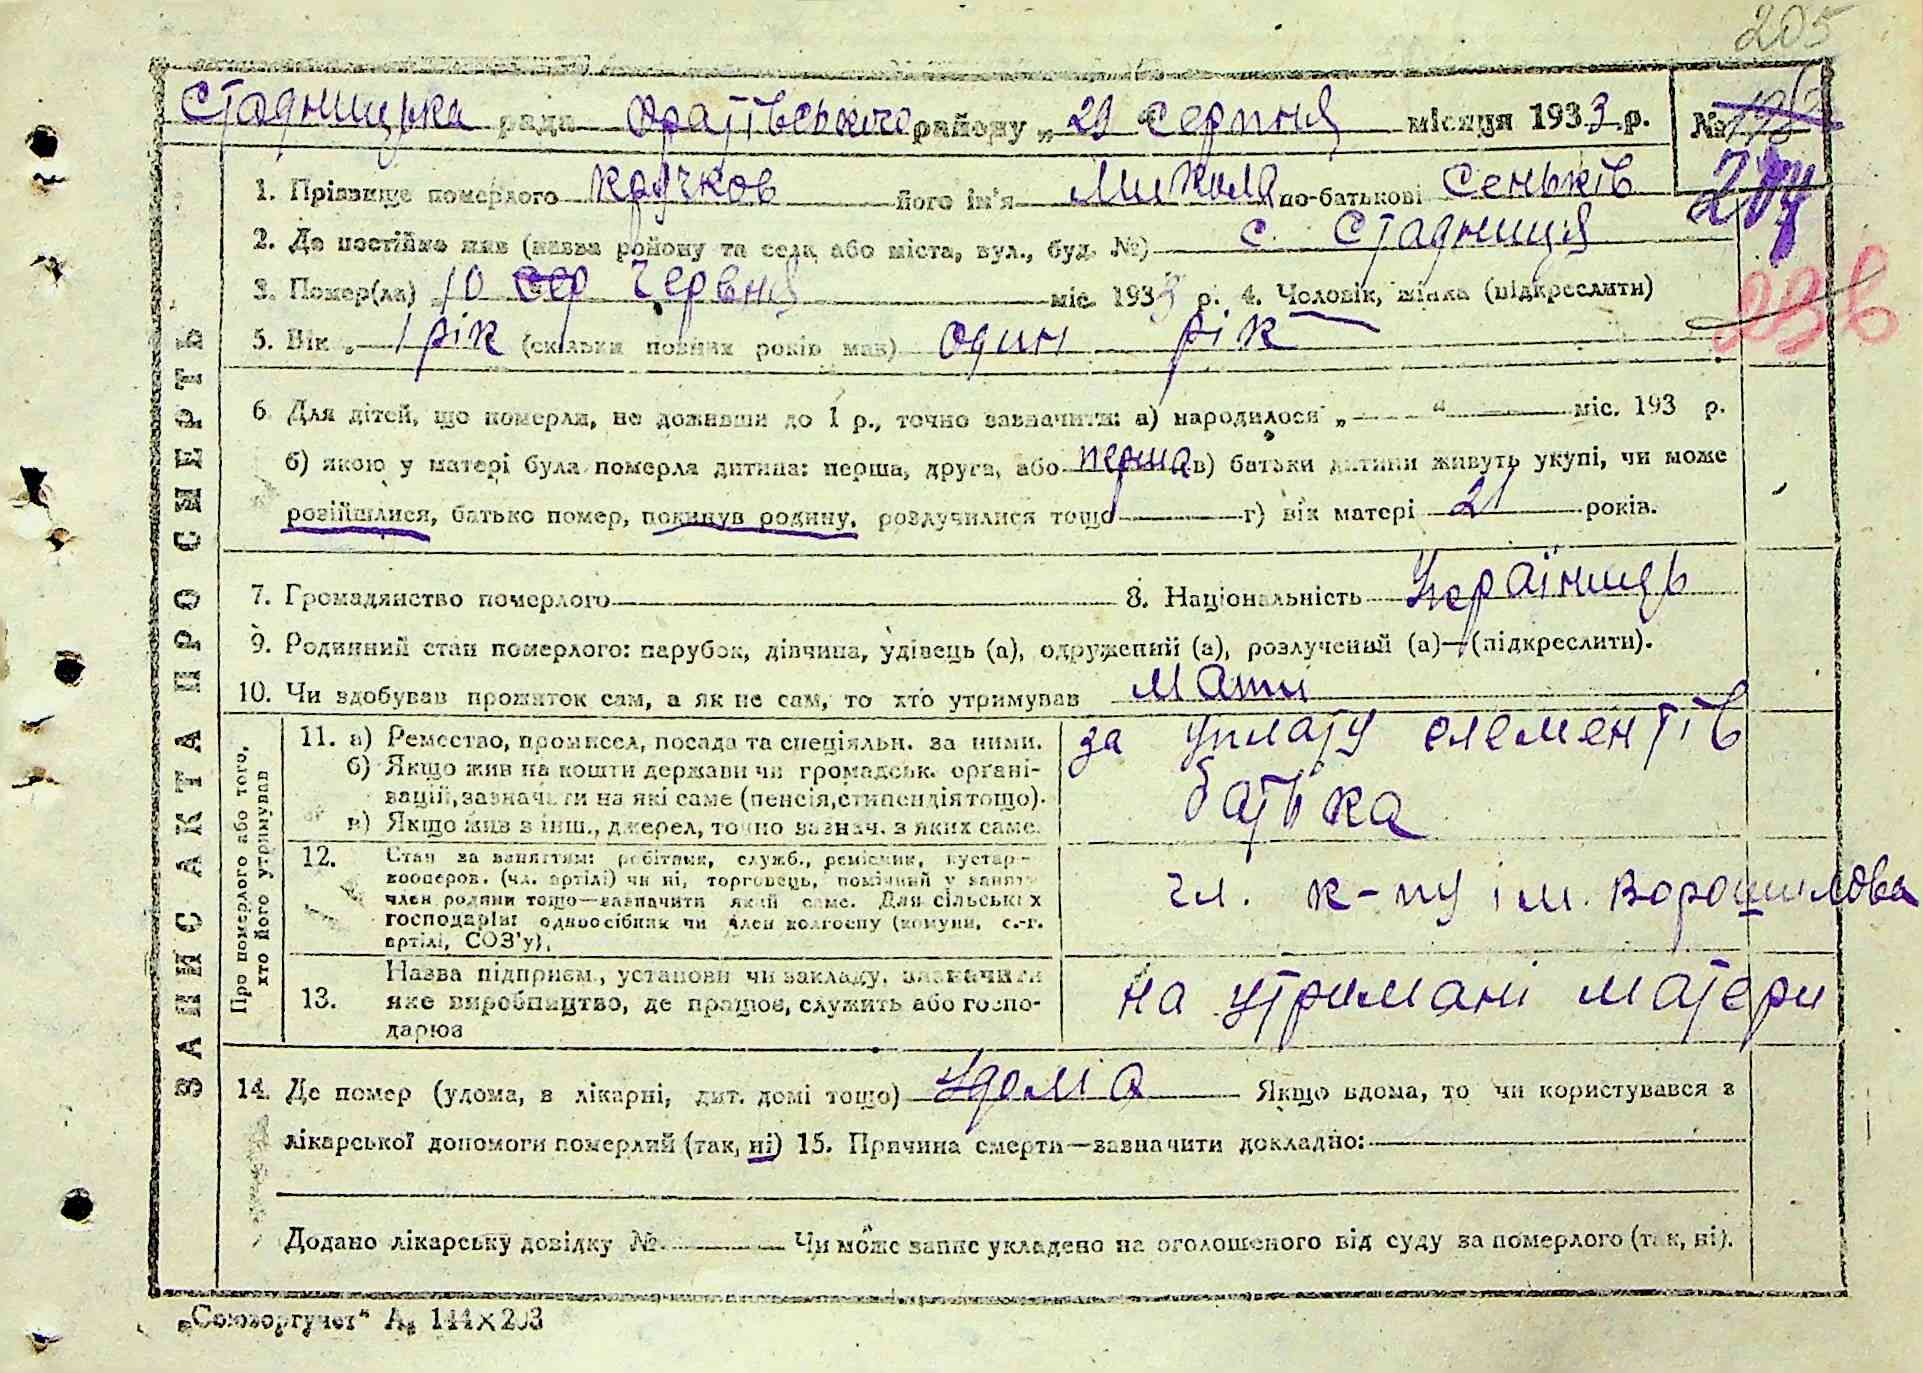 205
Стадницька рада Оратівського району „ 29 " серпня місяця 1933 р. №
207
1. Прізвище померлого Крүчков його ім'я Микола по-батькові Сеньків
2. Де постійно жив (назва району та села, або міста, вул., буд. №) с. Стадниця
3. Помер(ла) „ 10 сер червня міс. 1933 р. 4. Чоловік, жінка (підкреслити)
236
5. Вік „ 1 рік (скільки повних років мав) один рік
6. Для дітей, що померли, не доживши до 1 р., точно зазначити: а) народилося „ — " — міс. 193 р.
б) якою у матері була померла дитина: перша, друга, або перша в) батьки дитини живуть укупі, чи може
розійшлися, батько помер, покинув родину, розлучилися тощо г) вік матері 21 років.
7. Громадянство померлого 8. Національність Українець
9. Родинний стан померлого: парубок, дівчина, удівець (а), одружений (а), розлучений (а)—(підкреслити).
10. Чи здобував прожиток сам, а як не сам, то хто утримував мати
ЗАПИС АКТА ПРО СМЕРТЬ
Про померлого або того, хто його утримував
11. а) Ремество, промисел, посада та спеціяльн. за ними.
б) Якщо жив на кошти держави чи громадськ. органі-
зацій, зазначити на які саме (пенсія, стипендія тощо).
в) Якщо жив з інш., джерел, точно зазнач. з яких саме.
за уплату елементів
батька
12. Стан за заняттям: робітник, служб., ремісник, кустар-
кооперов. (чл. артілі) чи ні, торговець, помічний у занятт.
член родини тощо—зазначити який саме. Для сільських
господарів: одноосібник чи член колгоспу (комуни, с.-г.
артілі, СОЗ'у).
чл. к-пу ім. Ворошилова
13. Назва підприєм., установи чи закладу, зазначити
яке виробництво, де працює, служить або госпо-
дарює
на утримані матери
14. Де помер (удома, в лікарні, дит. домі тощо) удома Якщо вдома, то чи користувався з
лікарської допомоги померлий (так, ні) 15. Причина смерти—зазначити докладно:
Додано лікарську довідку № Чи може запис укладено на оголошеного від суду за померлого (так, ні).
„Союзоргучет" А₅ 144×203